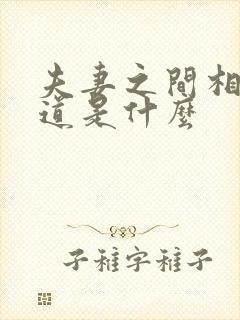 夫妻之間相
道是什麼
子稚字稚子